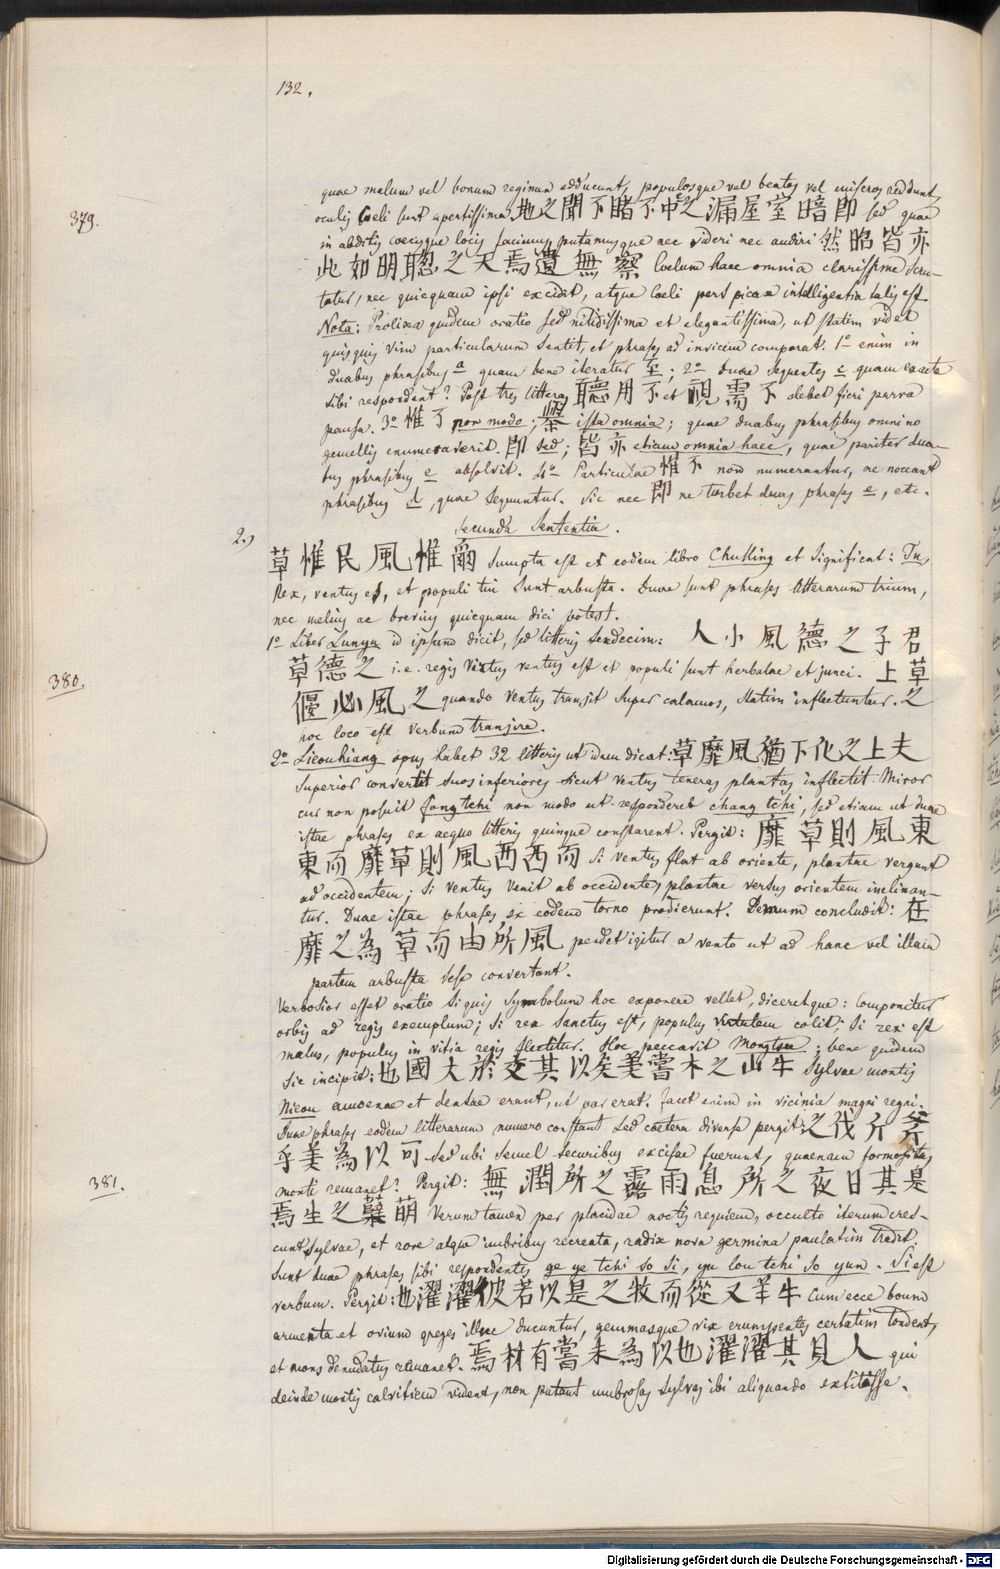 132.
quae malum vel bonum regimen adducunt, populosque vel beatos vel miseros reddunt,
379.
oculis Coeli sunt apertissima 地之聞不睹不中之漏屋室暗即 sed quae
in abditis coecisque locis facimus putamusque nec videri nec audiri 然昭皆亦
此如明聰之天焉遺無察 Coelum haec omnia clarissime scru-
tatur, nec quicquam ipsi excidit, atque Coeli perspicax intelligentia talis est
Nota: Prolixa quidem oratio sed nitidissima et elegantissima, ut statim videt
quisquis vim particularum sentit, et phrases ad invicem comparat. 1º enim in
duabus phrasibus a quam bene iteratur 至; 2º duae sequentes c quam exacte
sibi respondent? Post tres litteras 聽用不 et 視需不 debet fieri parva
pausa. 3º 惟不 non modo; 繄 ista omnia; quae duabus phrasibus omnino
gemellis enumeraverit. 即 sed; 皆亦 etiam omnia haec, quae pariter dua-
bus phrasibus e absolvit. 4º Particulae 惟不 non numerantur, ne noceant
phrasibus d, quae sequuntur. Sic nec 即 ne turbet duas phrases e, etc.
Secunda Sententia.
2.) 草惟民風惟爾 Sumpta est ex eodem libro Chuking et significat: Tu,
Rex, ventus es, et populi tui sunt arbusta. Duae sunt phrases litterarum trium,
nec melius ac brevius quicquam dici potest.
1º Liber Lunyu id ipsum dicit, sed litteris sendecim: 人小風德之子君
380.
草德之 i.e. regis virtus ventus est et populi sunt herbulae et junci. 上草
偃必風之 quando ventus transit super calamos, statim inflectuntur. 之
hoc loco est verbum transire.
2º Lieouhiang opus habet 32 litteris ut idem dicat: 草靡風猶下化之上夫
Superior convertit suos inferiores sicut ventus teneras plantas inflectit. Miror
cur non posuit fong tchi non modo ut responderet chang tchi, sed etiam ut duae
istae phrases ex aequo litteris quinque constarent. Pergit: 靡草則風東
東而靡草則風西西而 Si ventus flat ab oriente, plantae vergunt
ad occidentem; si ventus venit ab occidente, plantae versus orientem inclinan-
tur. Duae istae phrases ex eodem torno prodierunt. Demum concludit: 在
靡之為草而由所風 pendet igitur a vento ut ad hanc vel illam
partem arbusta sese convertant.
Verbosior esset oratio si quis symbolum hoc exponere vellet, diceretque: Componitur
orbis ad regis exemplum; si rex sanctus est, populus virtutem colit; si rex est
malus, populus in vitia regis flectitur. Hoc peccavit Mongtsee; bene quidem
sic incipit: 也國大於交其以矣美嘗木之山牛 Sylvae montis
Nieou amoenae et densae erant, ut par erat. Jacet enim in vicinia magni regni.
Duae phrases eodem litterarum numero constant sed caetera diversa pergit: 之伐斤斧
乎美為以可 Sed ubi semel securibus excisae fuerunt, quaenam formositas
381.
monti remanet? Pergit: 無潤所之露雨息所之夜日其是
焉生之櫱萌 Verum tamen per placidae noctis requiem, occulto iterum cres-
cunt sylvae, et rore atque imbribus recreata, radix nova germina paulatim trudit.
Sunt duae phrases sibi respondentes ge ye tchi so si, yu lou tchi so yun. Si est
verbum. Pergit: 也濯濯彼若以是之牧而從又羊牛 Cum ecce boum
armenta et ovium greges illuc ducuntur, gemmasque vix erumpentes certatim tondent,
et mons denudatus remanet. 焉材有嘗未為以也濯濯其見人 qui
deinde montis calvitiem vident, non putant umbrosas sylvas ibi aliquando extitisse.
Digitalisierung gefördert durch die Deutsche Forschungsgemeinschaft - DFG